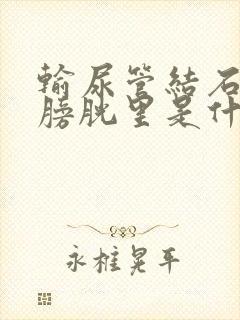 输尿管结石
膀胱里是什
永椎晃平